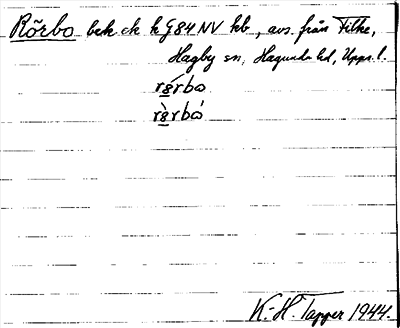 Rörbo bek ck k G84 NV kb, avs. från Filke,
Hagby sn, Hagunda hd, Upps. l.
rö́rbo
rö̀rbó
K.-H. Tapper 1944.